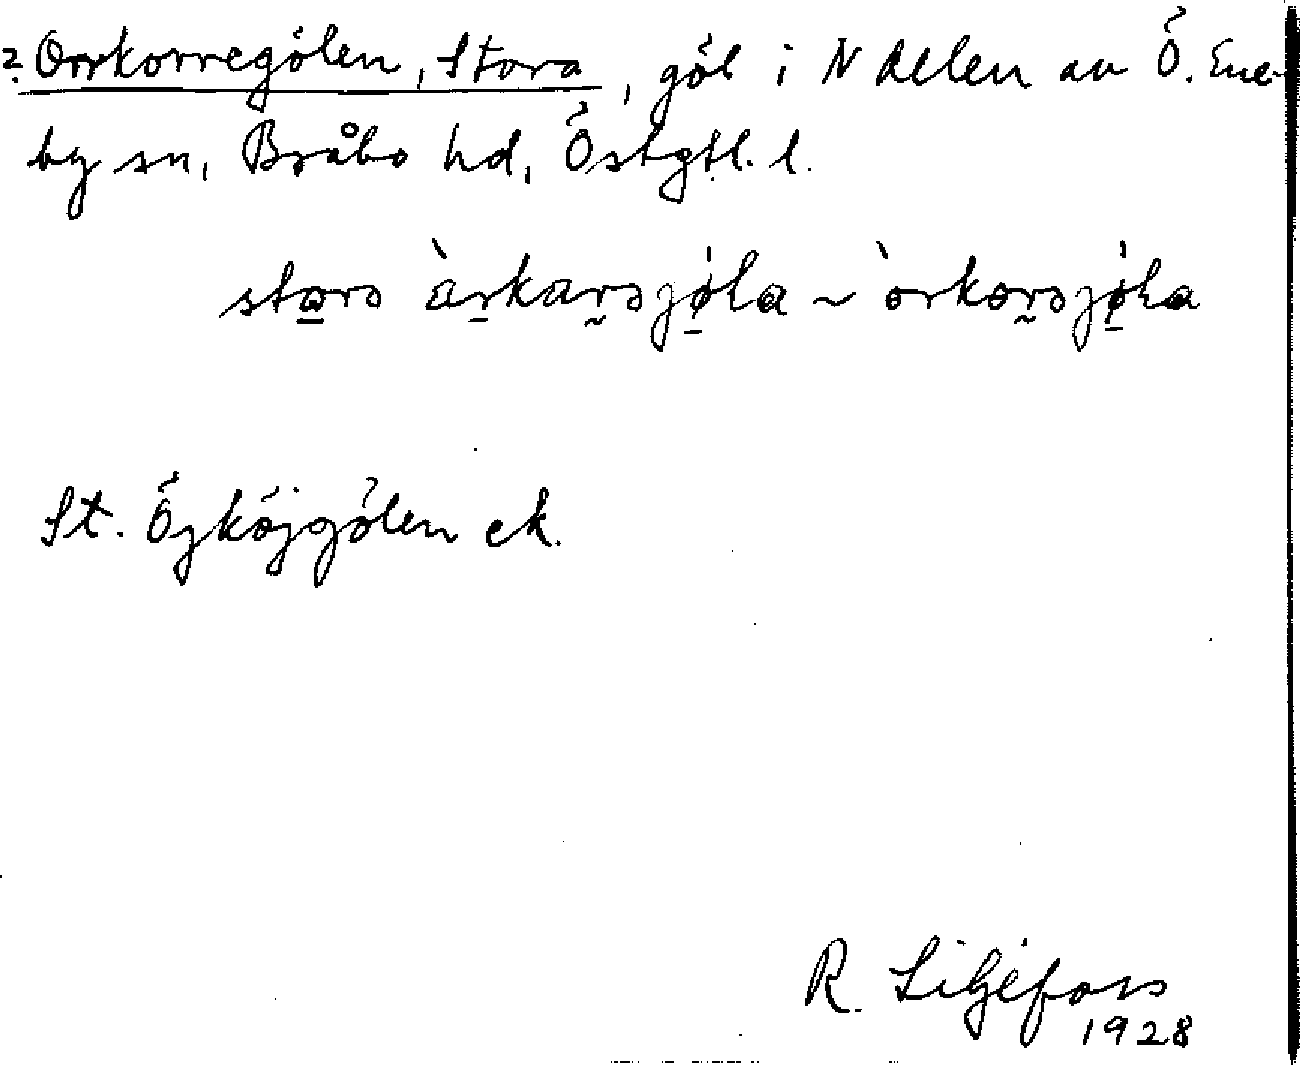 ? Orrkorregölen, Stora, göl i N delen av Ö. Ene-
by sn, Bråbo hd, Östgtl. l.
storə àrkarəjøla ~ òrkorəjøla
St. Öjköjgölen ek.
R. Liljefors
1928